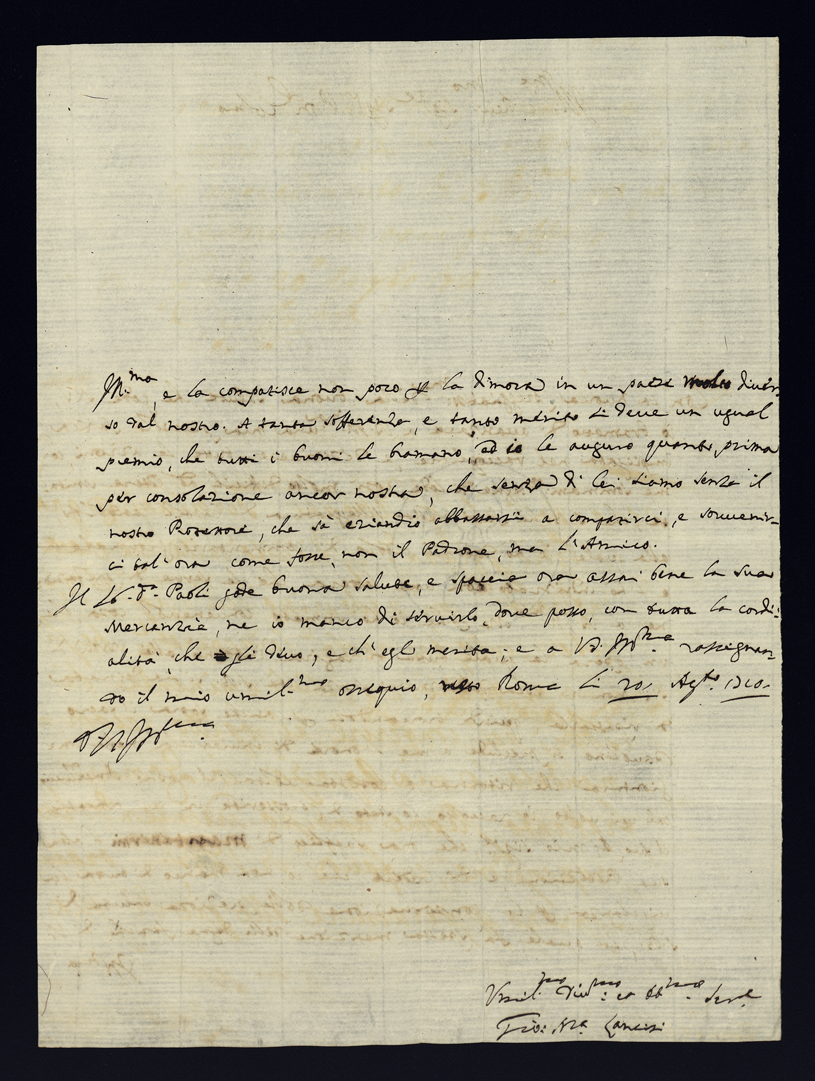 Ill.ma, e la compatisce non poco p la dimora in un paese molto diver-
so dal nostro. A tanta sofferenza, e tanto merito si deve un ugual
premio, che tutti i buoni le bramano, ed io le auguro quanto prima
per consolazione ancor nostra, che senza di lei siamo senza il
nostro Protettore, che sà eziandio abbassarsi a compatirci, e souvenir-
ci tal'ora come fosse, non il Padrone, ma l'Amico.
Il Paoli gode buona salute, e spaccia ora assai bene la sua
Mercanzia, ne io manco di servirlo, dove posso, con tutta la cordi-
alità, che gli devo, e ch'egli merita; e a V.S. Ill.ma rassegnan-
do il mio umil.mo ossequio, resto Roma li 20 Ag.to 1710.
D V.S. Ill.ma
Umil.mo Div.mo et Obl.mo Ser.e
Gio: M.a Lancisi